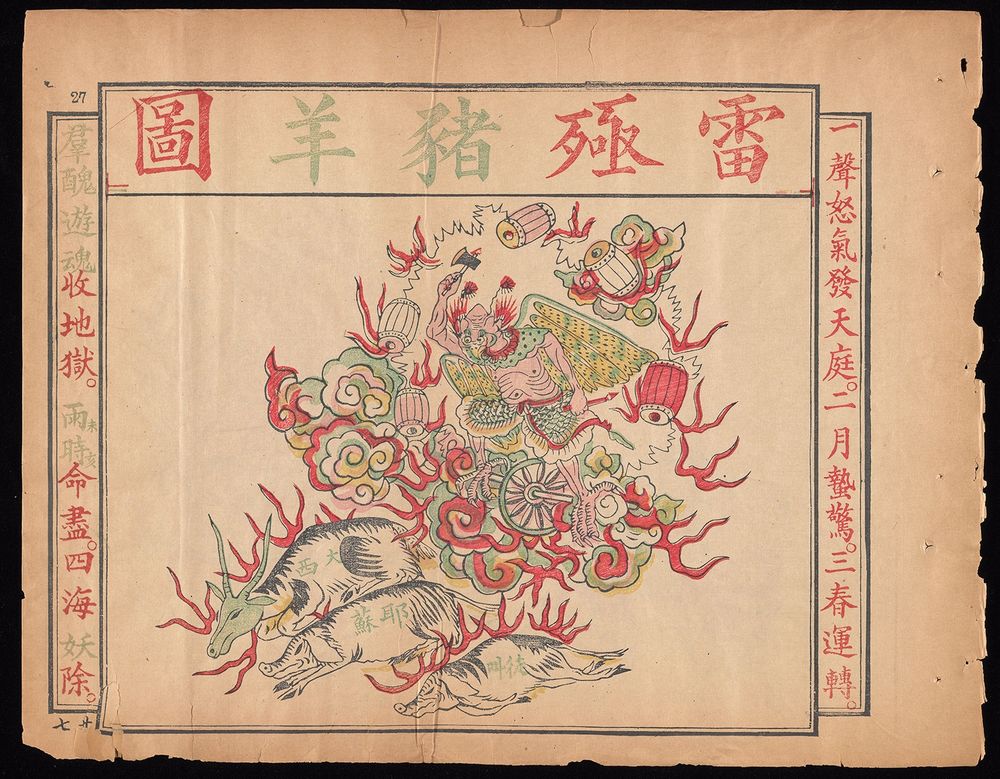 27
雷殛豬羊圖
一聲怒氣發天庭。二月蟄驚。三春運轉。
大西
耶蘇
徒叫
羣醜遊魂收地獄。兩時未亥命盡。四海妖除。
廿七